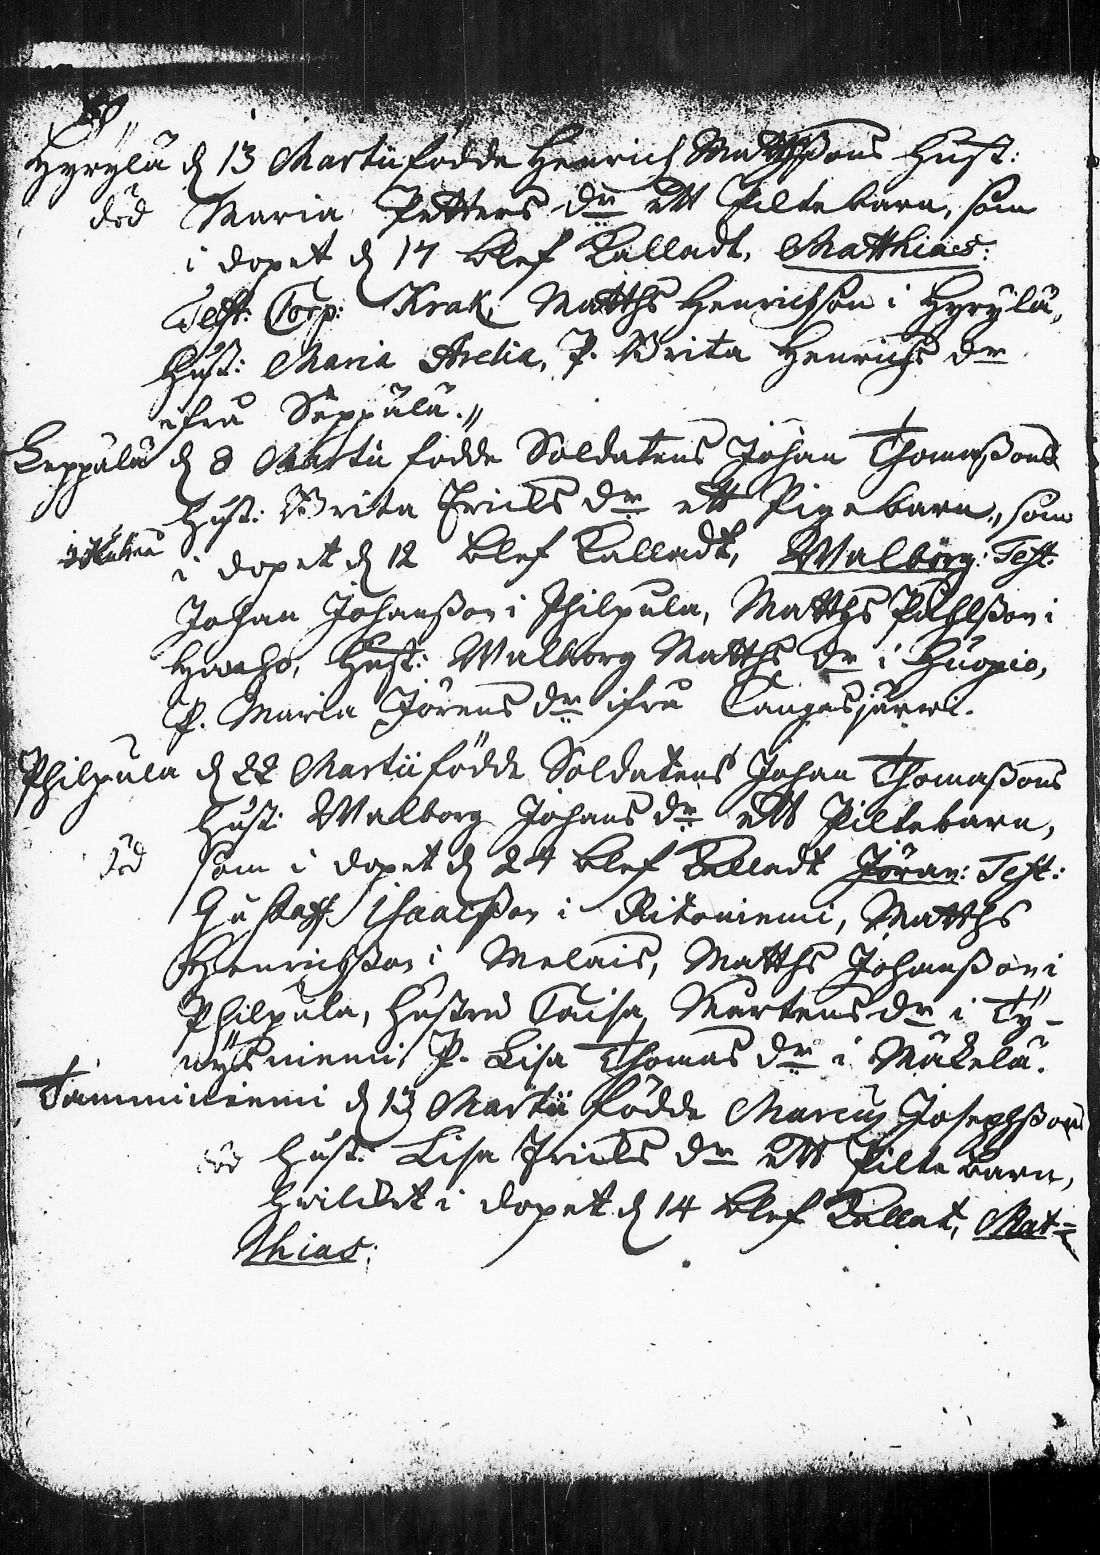 Hyrylä d 13 Martii födde Henrich Matthßons Hust:
död Maria Petters dr ett Piltebarn, som
i dopet d 17 blef Kalladt, Matthias:
Test: Corp: Krak, Matths Henrichson i Hyrylä,
Hust: Maria Arelia, P. Brita Henrichs dr
ifrå Seppälä.,,
Leppälä d 8 Martii födde Soldatens Johan Thomaßons
Hust: Brita Erichs dr ett Pigebarn, som
i dopet d 12 blef Kalladt, Walborg: Test.
Johan Johanßon i Philpula, Matths Påhlßon i
Hust: Walborg Matths dr i Huopio,
P. Maria Jörens dr ifrå Cangasjärwi.
Philpula d 22 Martii födde Soldatens Johan Thomaßons
Hust: Walborg Johans dr ett Piltebarn,
död som i dopet d 24 blef Kalladt Jöran: Test:
Gustaff Isaacßon i Ritoniemi, Matths
Henrichßon i Melais, Matths Johanßon i
Philpula, Hustru Caisa Mårtens dr i Ty-
nysniemi, P. Lisa Thomas dr i Mäkelä.
Tamminiemi d 13 Martii födde Marcus Josephßons
död Hust: Lisa Erichs dr ett Piltebarn,
hvilket i dopet d 14 blef Kallat, Mat=
thias: